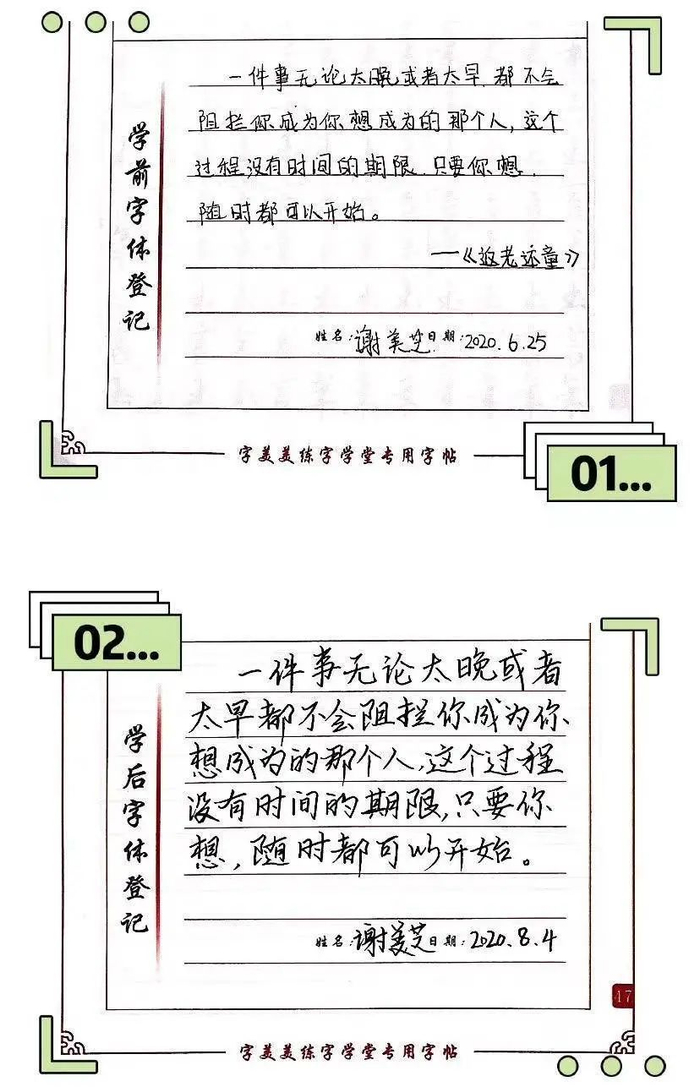 学前字体登记
一件事无论太晚或者太早,都不会
阻拦你成为你想成为的那个人,这个
过程没有时间的期限,只要你想,
随时都可以开始。
—《返老还童》
姓名:谢美芝日期:2020.6.25
字美美练字学堂专用字帖
01...
02...
学后字体登记
一件事无论太晚或者
太早都不会阻拦你成为你
想成为的那个人,这个过程
没有时间的期限,只要你
想,随时都可以开始。
姓名:谢美芝日期:2020.8.4
17
字美美练字学堂专用字帖